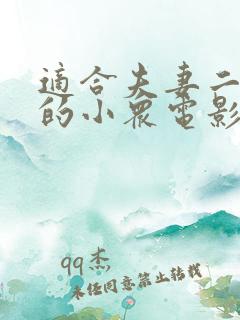 適合夫妻二
的小眾電影
qq杰
未经同意禁止转载